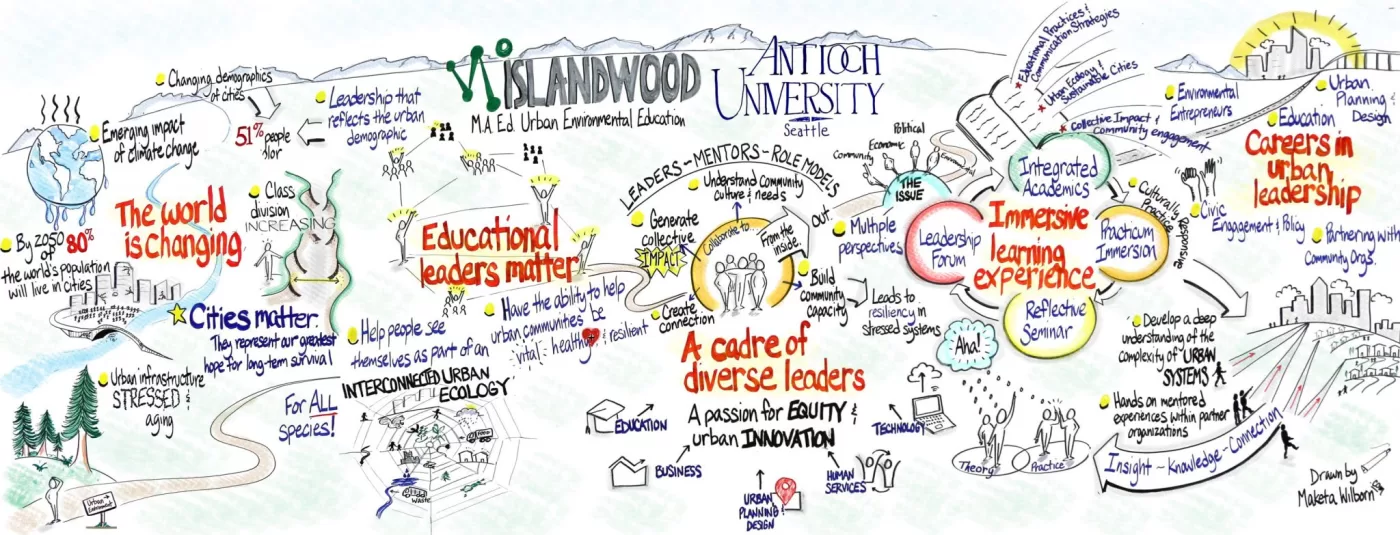 ISLANDWOOD
M.A. Ed. Urban Environmental Education
ANTIOCH
UNIVERSITY
Seattle
Changing demographics
of cities
51% people
Leadership that
reflects the urban
demographic
Emerging impact
of climate change
The world
is changing
Class
division
INCREASING
By 2050 80%
of
the world's population
will live in cities
Cities matter.
They represent our greatest
hope for long-term survival
Urban infrastructure
STRESSED &
aging
Urban
Educational
leaders matter
Have the ability to help
urban communities be
vital : healthy & resilient
Help people see
themselves as part of an
INTERCONNECTED URBAN
ECOLOGY
For ALL
species!
WASTE
LEADERS - MENTORS - ROLE MODELS
Understand community
culture & needs
Generate
collective
IMPACT
Collaborate to...
From the
inside.
OUT.
Create
connection
Build
community
capacity
Leads to
resiliency in
stressed systems
A cadre of
diverse leaders
A passion for EQUITY &
urban INNOVATION
EDUCATION
BUSINESS
URBAN
PLANNING &
DESIGN
HUMAN
SERVICES
TECHNOLOGY
Political
Economic
Community
THE
ISSUE
Multiple
perspectives
Educational Practices &
Communication Strategies
Urban Ecology &
Sustainable Cities
Collective Impact &
Community engagement
Integrated
Academics
Leadership
Forum
Immersive
learning
experience
Practicum
Immersion
Reflective
Seminar
Culturally
Responsive
Practice
Aha!
Theory
Practice
Develop a deep
understanding of the
complexity of URBAN
SYSTEMS
Hands on mentored
experiences within partner
organizations
Insight - Knowledge - Connection
Environmental
Entrepreneurs
Education
Urban
Planning &
Design
Careers in
urban
leadership
Civic
Engagement & Policy
Partnering with
Community Orgs.
Drawn by
Maketa Wilborn